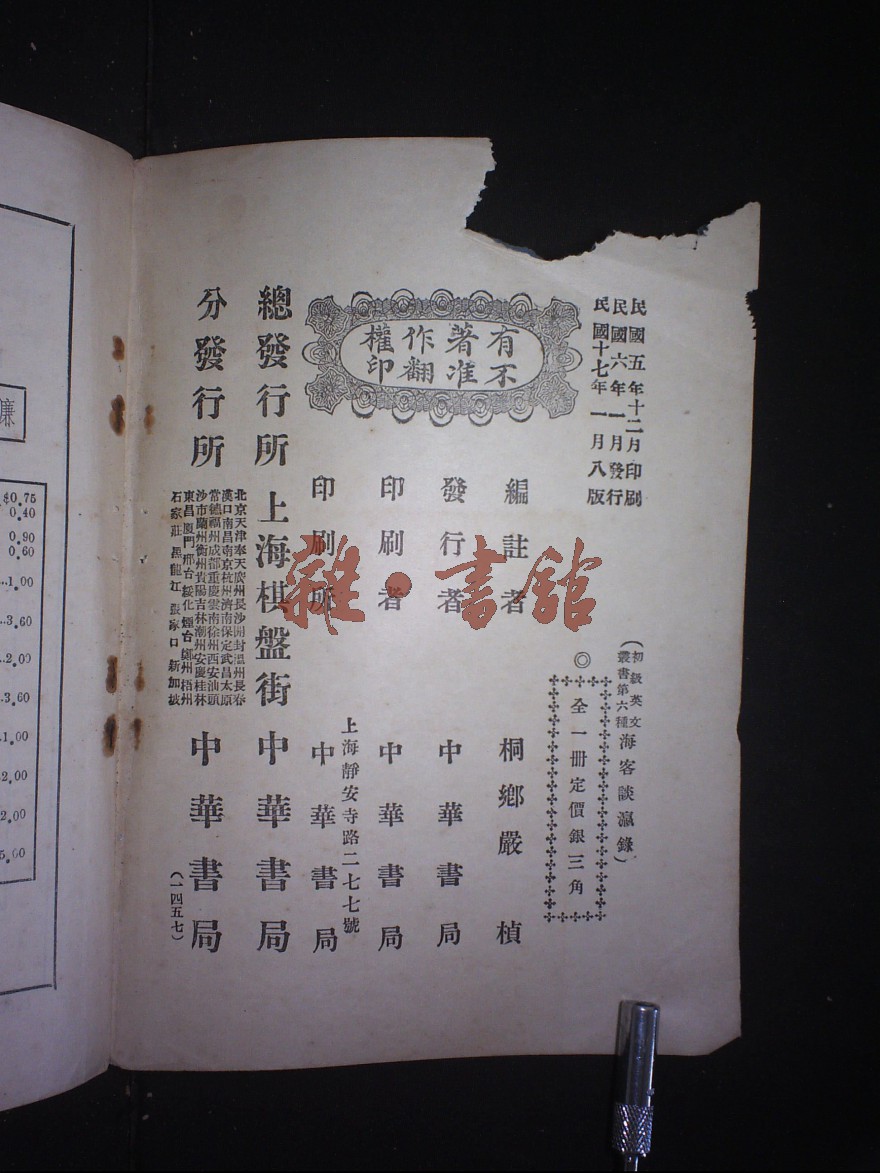 民國五年十二月印刷
民國六年一月發行
民國十七年一月八版
(初級英文叢書第六種 海客談瀛錄)
◎全一冊定價銀三角
編註者 桐鄉嚴楨
發行者 中華書局
印刷者 中華書局
上海靜安寺路二七七號
印刷所 中華書局
有著作權
不准翻印
總發行所 上海棋盤街 中華書局
分發行所 中華書局
北京天津奉天廣州長沙開封溫州長春
漢口南昌南京杭州濟南保定武昌太原
常德福州成都重慶雲南徐州西安汕頭
沙市蘭州衡州貴陽吉林潮州安慶桂林
東昌廈門邢台綏化煙台鄭州梧州
石家莊 黑龍江 張家口 新加坡
(一四五七)
雜·書館
廉
$0.75
0.40
0.90
0.60
..1.00
..3.60
..2.00
..3.60
..1.00
..2.00
2.00
5.00